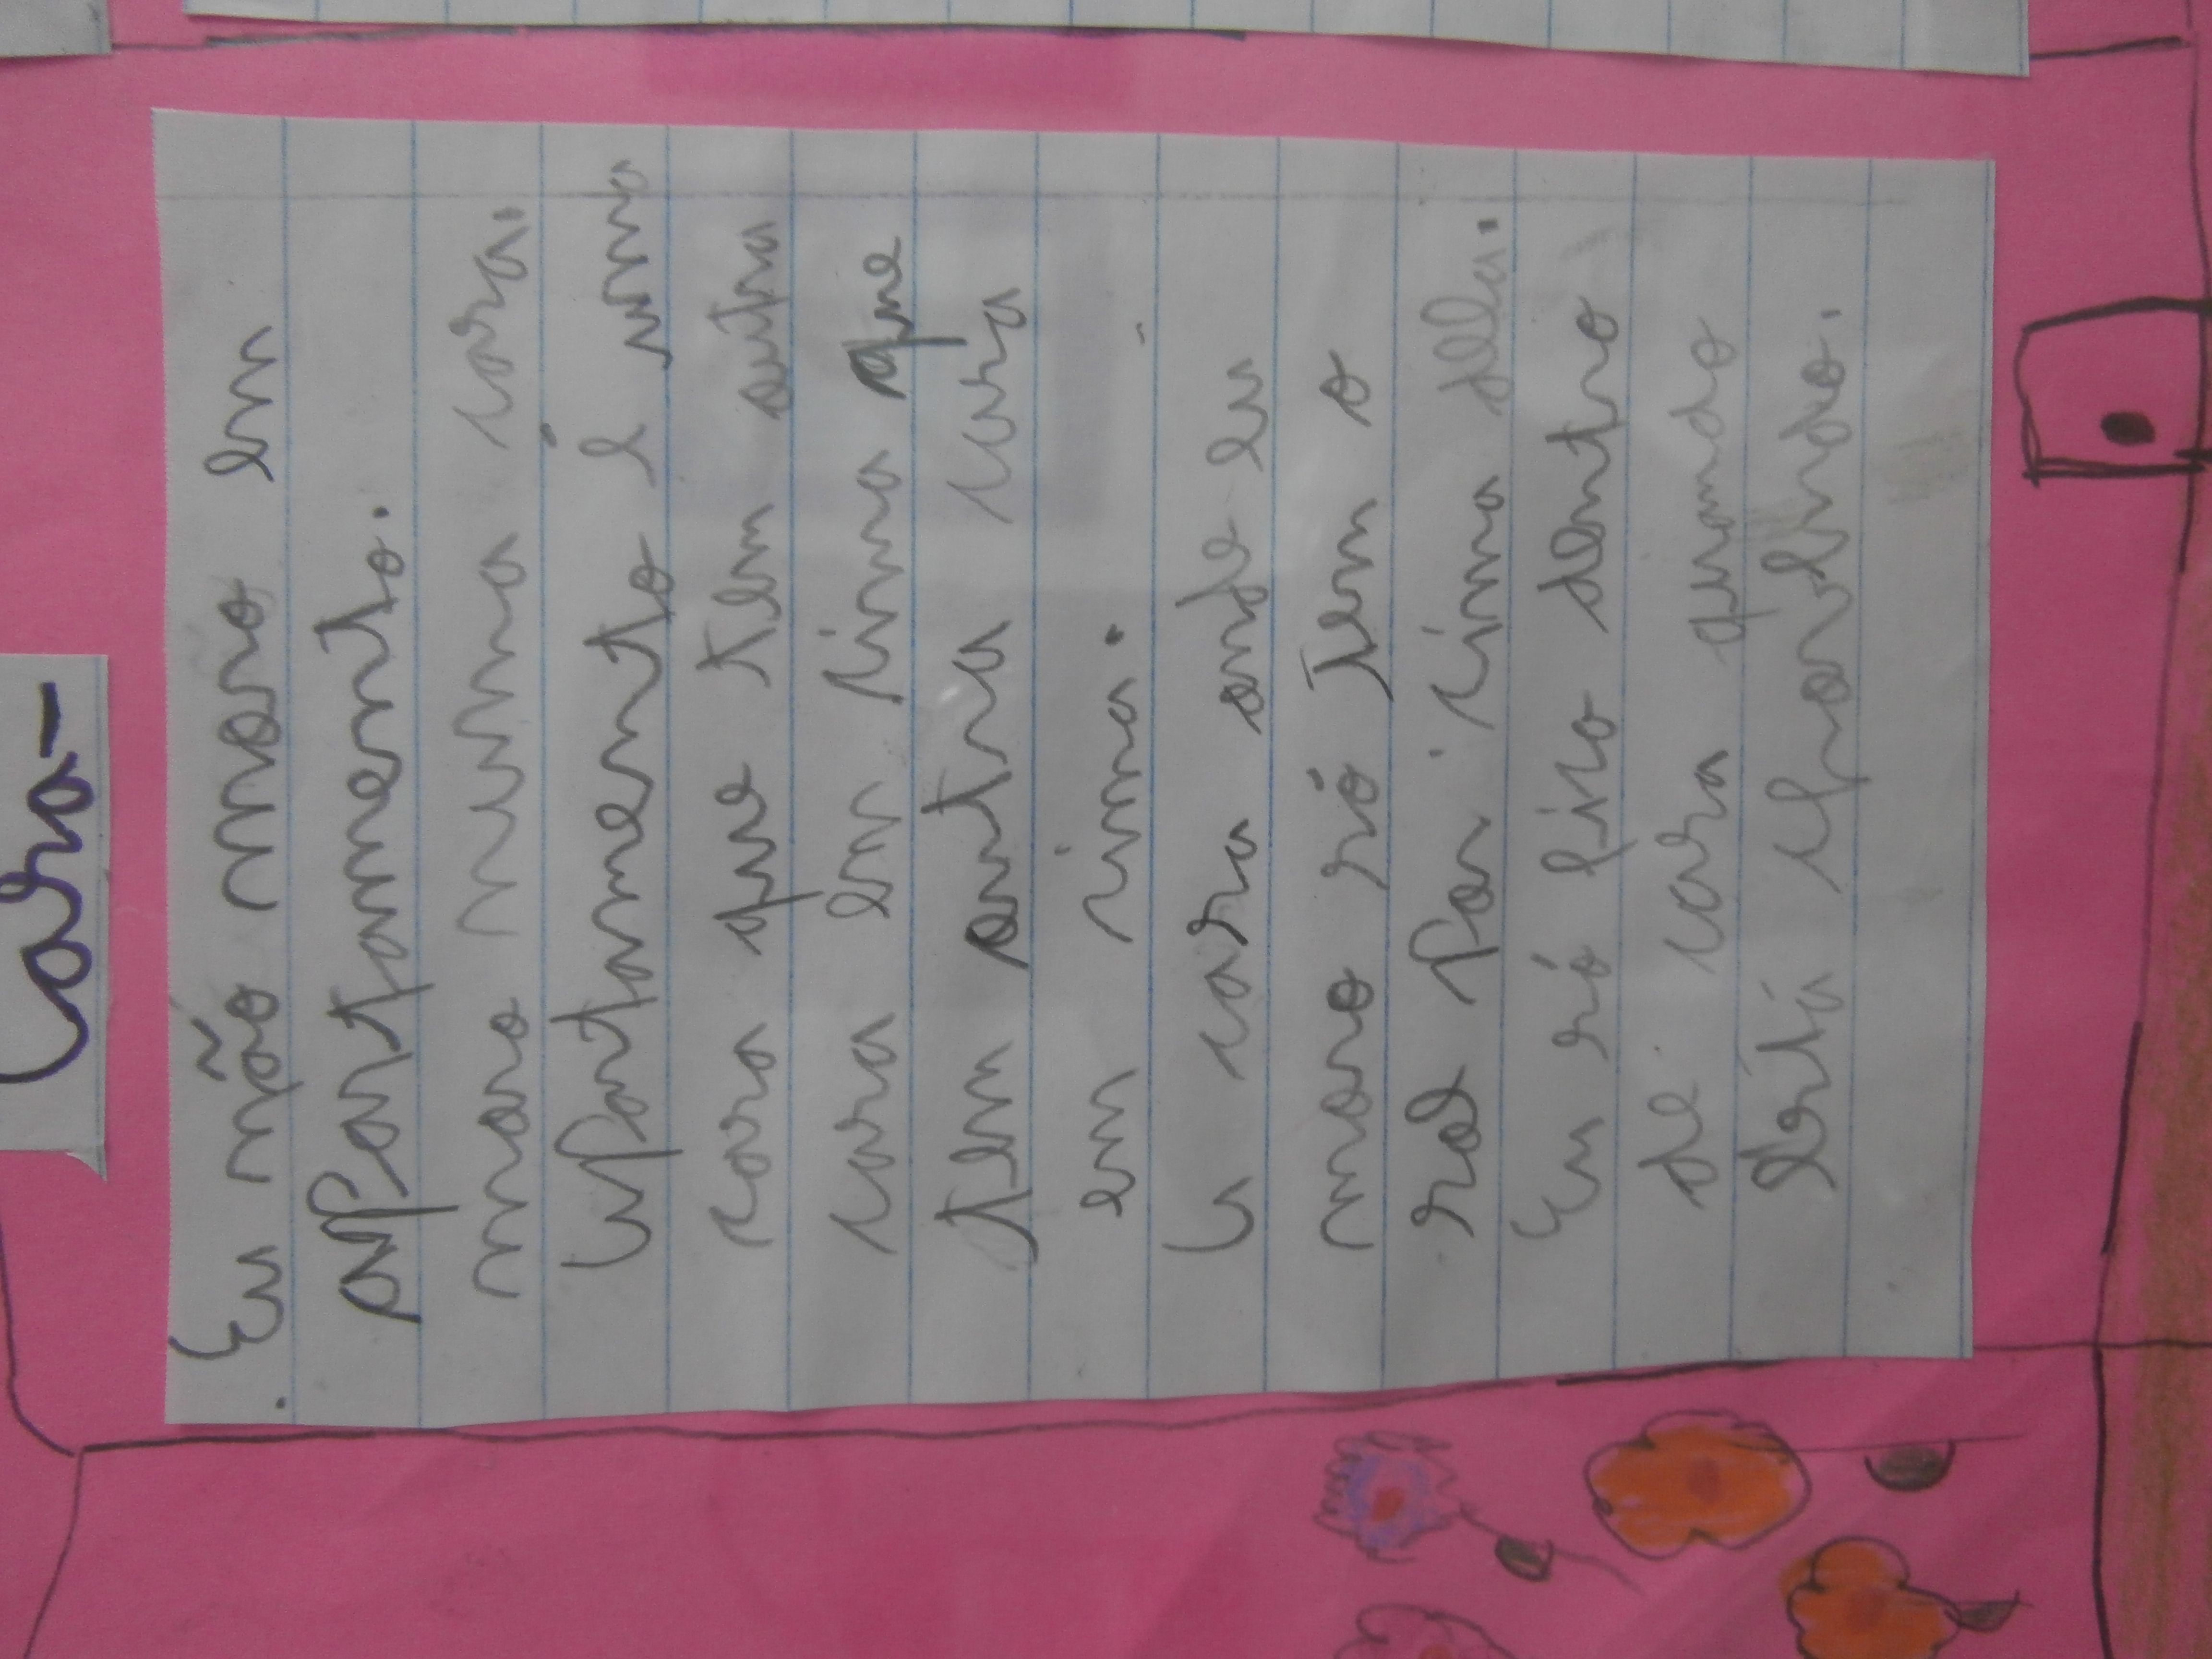 Casa-
Eu não moro em
apartamento.
moro numa casa.
Apartamento é uma
casa que tem outra
casa em cima que
tem outra casa
em cima.
A casa onde eu
moro só tem o
sol por cima dela.
Eu só fico dentro
de casa quando
está